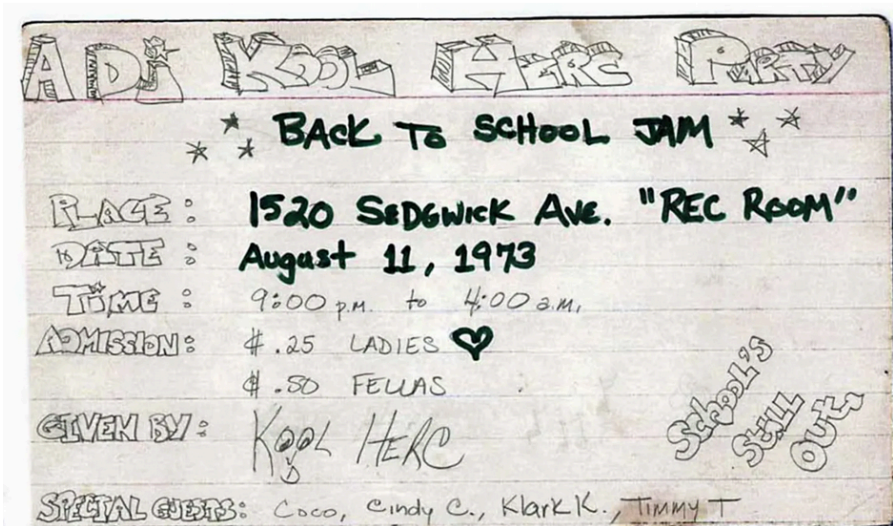 A DJ KOOL HERC PARTY
BACK TO SCHOOL JAM
PLACE: 1520 SEDGWICK AVE. "REC ROOM"
DATE: August 11, 1973
TIME: 9:00 p.m. to 4:00 a.m.
ADMISSION: $.25 LADIES
$.50 FELLAS
GIVEN BY: KOOL HERC
SCHOOL'S
STILL
OUT,
SPECIAL GUESTS: Coco, Cindy C., Klark K., TIMMY T